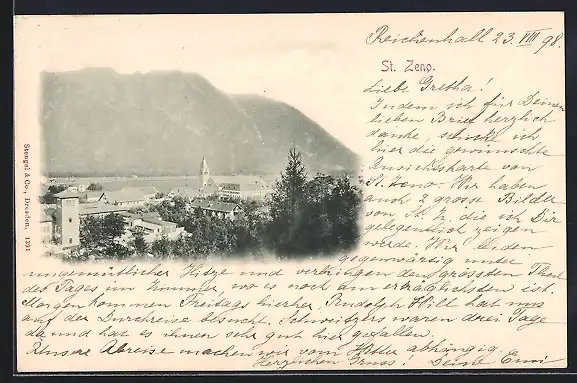 Reichenhall 23. VIII 98.
St. Zeno.
Liebe Gretha!
Indem ich für Deinen
lieben Brief herzlich
danke, schicke ich
hier die gewünschte
Ansichtskarte von
St. Zeno. Wir haben
auch 2 grosse Bilder
von St. Z. die ich Dir
gelegentlich zeigen
werde. Wir leiden
gegenwärtig unter
ungemüthlicher Hitze und verbringen den grössten Theil
des Tages im Zimmer, wo es noch am erträglichsten ist.
Morgen kommen Freitags hierher, Rudolph Hill hat uns
auf der Durchreise besucht, Schweitzers waren drei Tage
da und hat es ihnen sehr gut hier gefallen.
Unsere Abreise machen wir vom Wetter abhängig.
Herzlichen Gruss! Deine Emi
Stengel & Co., Dresden. 1291